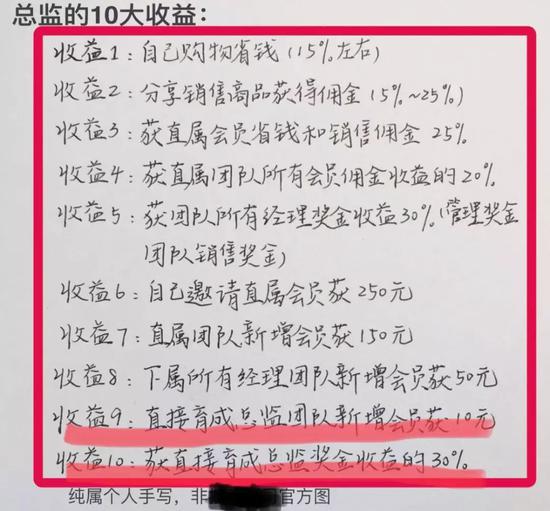 总监的10大收益：
收益1：自己购物省钱(15%左右)
收益2：分享销售商品获得佣金(5%~25%)
收益3：获直属会员省钱和销售佣金 25%
收益4：获直属团队所有会员佣金收益的20%
收益5：获团队所有经理奖金收益30%(管理奖金
团队销售奖金)
收益6：自己邀请直属会员获 250元
收益7：直属团队新增会员获 150元
收益8：下属所有经理团队新增会员获50元
收益9：直接育成总监团队新增会员获10元
收益10：获直接育成总监奖金收益的30%
纯属个人手写，非 官方图